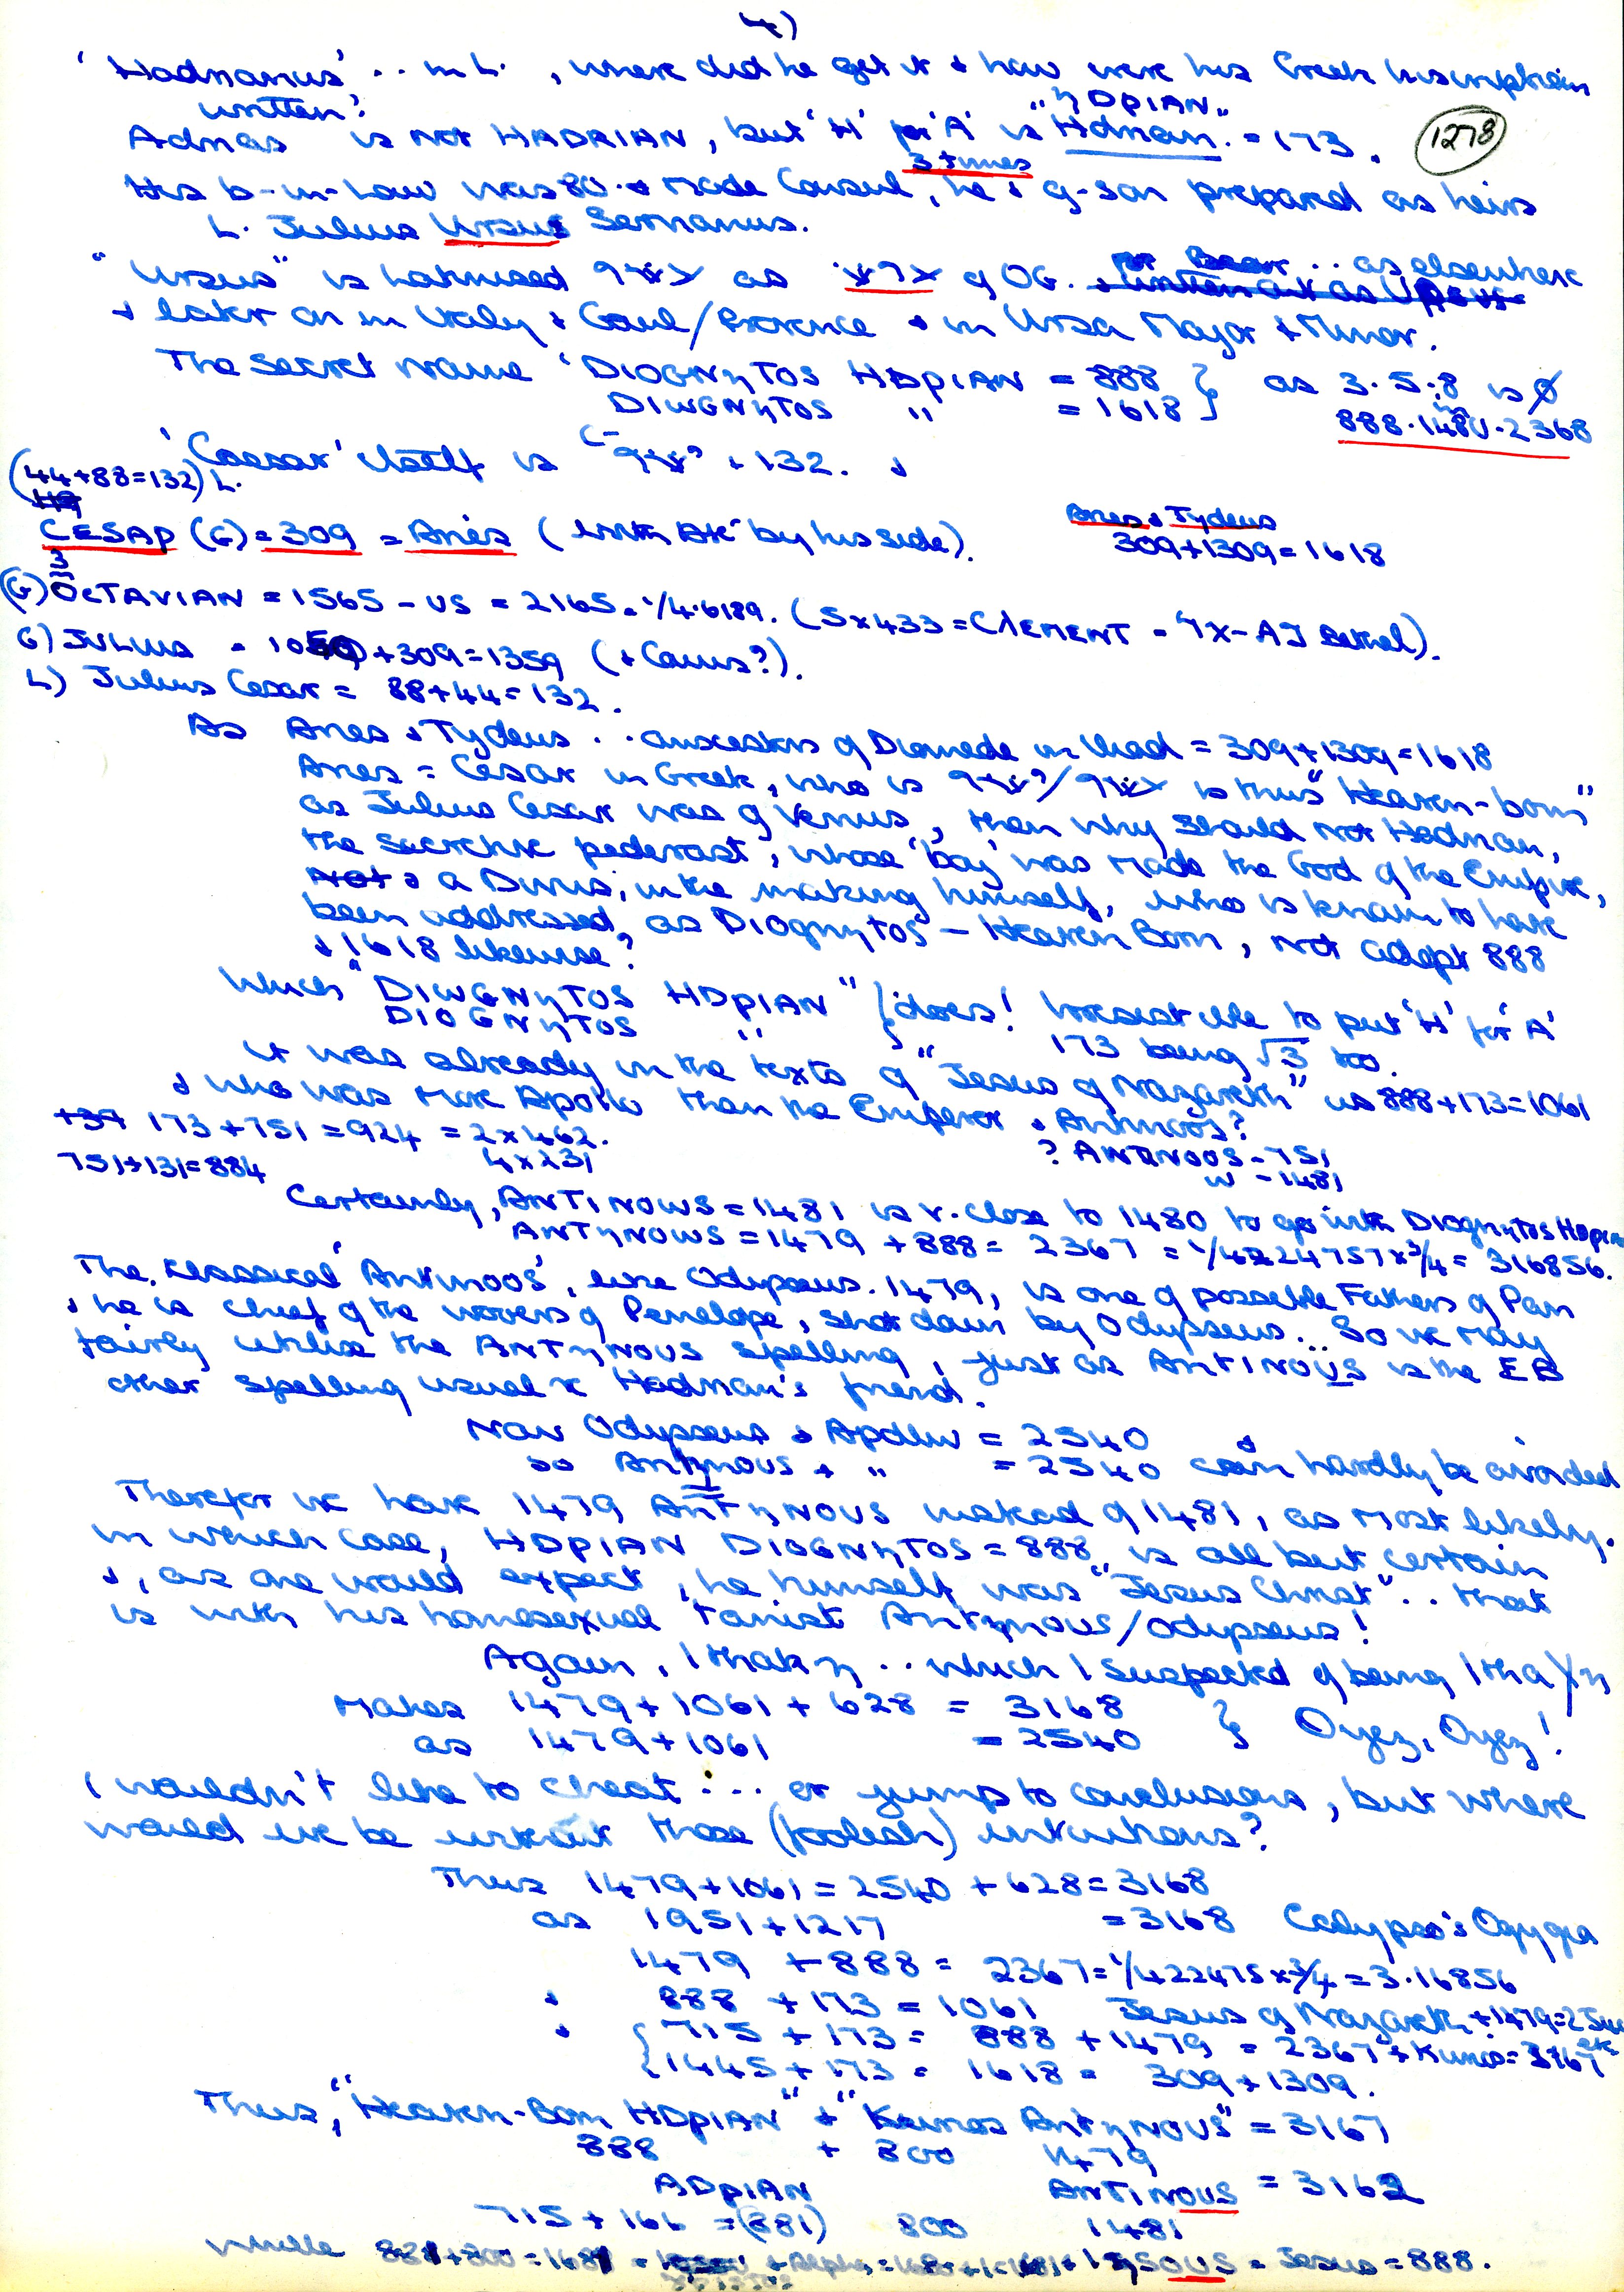 4)
'Hadrianus' .. in L. , where did he get it & how were his Greek inscriptions
written?
"ηDPIAN"
Adrias is not HADRIAN, but 'H' for 'A' is "Hdrian" = 173.
1278
3 times
His b-in-law was 80 & made Consul, he & g-son prepared as heirs
L. Julius Ursus Servianus.
"Ursus" is Latinised as of OG. for Bear .. as elsewhere
& later on in Italy & Gaul/Provence & in Ursa Major & Minor.
The Secret Name 'DIOGNηTOS HDPIAN = 888 } as 3.5.8 is Ø
DIWGNηTOS " = 1618 } 888.1480.2368
'Caesar' itself is 132. &
(44+88=132) L.
CESAP (G) = 309 = Ares (with by his side).
Ares & Tydeus
309+1309=1618
(G) OCTAVIAN = 1565 - US = 2165 = 1/4.6189. (5x433 = ClEMENT =
G) JULIUS = 1050 + 309 = 1359 (+ Caius?).
L) Julius Cesar = 88+44=132.
As Ares & Tydeus .. ancestors of Diomede in Iliad = 309+1309=1618
Ares = Cesar in Greek, who is is thus "Heaven-born"
as Julius Cesar was of Venus, then why should not Hadrian,
the secretive pederast, whose 'boy' was made the God of the Empire,
& a Divus, in the making himself, who is known to have
been addressed as DIOgnηTOS – Heaven Born, not adopt 888
& 1618 likewise?
Which "DIWGNηTOS HDPIAN" } does! to put 'H' for 'A'
DIOGNηTOS " } 173 being √3 too.
It was already in the texts of "Jesus of Nazareth" as 888+173=1061
& who was more Apollo than the Emperor & Antinoos?
+39 173+751=924 = 2x462.
4x231
? ANTINOOS - 751
W - 1481
751+131=884
Certainly, ANTINOWS = 1481 is v. close to 1480 to go with DIOgnηTOS HDPIAN
ANTηNOWS = 1479 + 888 = 2367 = 1/4224757 x 3/4 = 316856.
The classical 'Antinoos', like Odysseus. 1479, is one of possible Fathers of Pan
& he is chief of the wooers of Penelope, shot down by Odysseus.. So we may
fairly utilise the ANTηNOUS spelling, just as ANTINOUS is the EB
other spelling usual Hadrian's friend.
Now Odysseus & Apollw = 2540
so Antηnous + " = 2540 can hardly be avoided
Therefor we have 1479 ANTηNOUS instead of 1481, as most likely.
in which case, HDPIAN DIOGNηTOS = 888, is all but certain
&, as one would expect, he himself was "Jesus Christ" .. that
is with his homosexual tanist Antηnous/Odysseus!
Again, Ithakη .. which I suspected of being
Makes 1479+1061+628 = 3168 } Oyez, Oyez!
as 1479+1061 = 2540 }
I wouldn't like to cheat ... or jump to conclusions, but where
would we be without those (foolish) intuitions?
Thus 1479+1061=2540 +628=3168
as 1951+1217 =3168 Calypso's Ogygia
1479 + 888 = 2367 = 1/422475 x 3/4 = 3.16856
& 888 + 173 = 1061 Jesus of Nazareth + 1479 =
& { 715 + 173 = 888 + 1479 = 2367 + Kurios = 3167
{ 1445 + 173 = 1618 = 309 + 1309.
Thus, "Heaven-Born HDPIAN" + "Kurios ANTηNOUS" = 3167
888 + 800 1479
ADPIAN ANTINOUS = 3162
715 + 166 = (881) 800 1481
while = Jesus = 888.